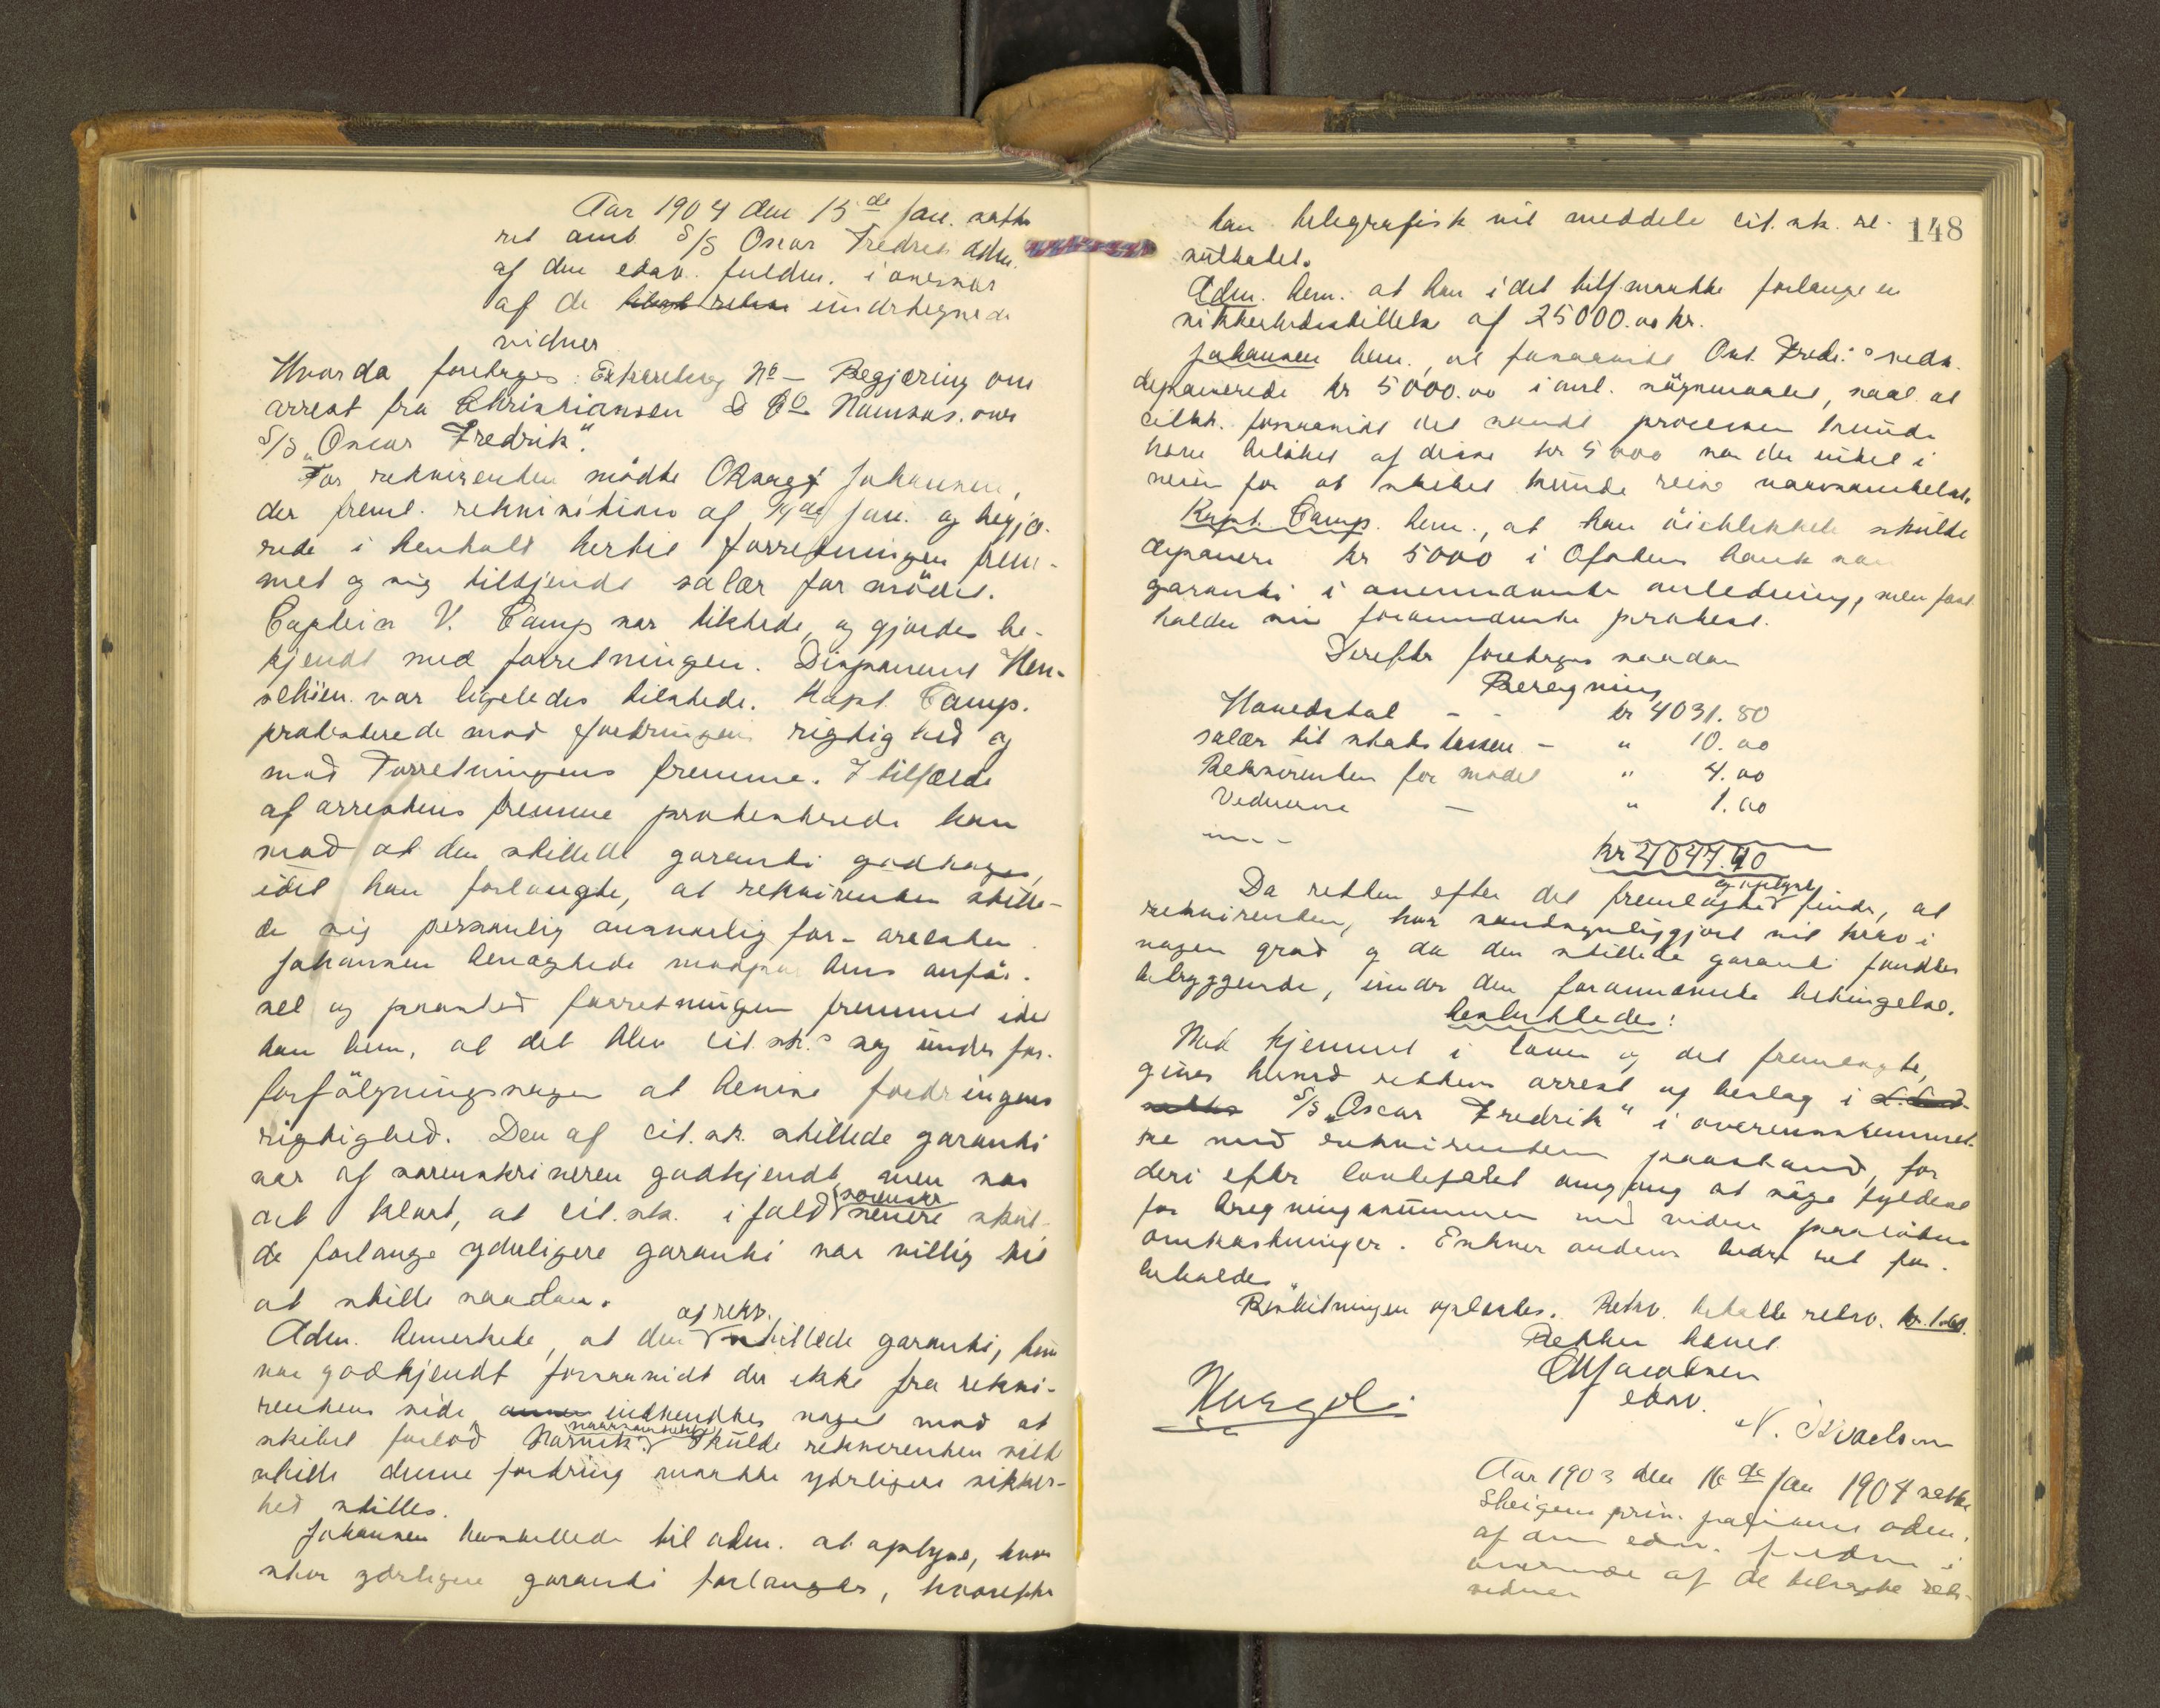 Aar 1904 den 15de Jan. sattes
ret omb. S/S Oscar Fredrik adm.
af den edsv. fuldm. i overvær
af de undertegnede
vidner
Hvorda foretoges: Extraretssag No — Begjæring om
arrest fra Christiansen & Co Namsos over
S/S „Oscar Fredrik".
For rekvirenten mødte Johansen,
der freml. rekvisition af 14de Jan. og begjæ-
rede i henhold hertil forretningen frem-
met og sig tilkjendt salær for mødet.
Captein V. Camp var tilstede, og gjordes be-
kjendt med forretningen. Disponent Hen-
schien var ligeledes tilstede. Kapt. Camp.
protesterede mod fordringens rigtighed og
mod Forretningens fremme. I tilfælde
af arrestens fremme protesterede han
mod at den stillede garanti godtages,
idet han forlangte, at rekvirenten stille-
de sig personlig ansvarlig for arresten.
Johansen benægtede modpartens anfør-
sel og paastod forretningen fremmet idet
han bem., at det blev cit. sk.s sag under for-
forfølgningssagen at bevise fordringens
rigtighed. Den af cit. sk. stillede garanti
var af sorenskriveren godkjendt, men var
det klart, at cit. sk. ifald sorenskr. senere skul-
de forlange yderligere garanti var villig til
at stille saadan.
Adm. bemerkede, at den af rekv. stillede garanti, kun
var godkjendt forsaavidt der ikke fra rekvi-
rentens side indvendtes noget mod at
skibet forlod Narvik. Skulde rekvirenten
denne fordring maatte yderligere sikker-
hed stilles.
Johansen henstillede til adm. at oplyse, hvor
stor yderligere garanti forlanges, hvorefter
148
han telegrafisk vil meddele cit. sk. re-
sultatet.
Adm. bem. at han i det tilf. maatte forlange en
sikkerhedsstillelse af 25000.00 kr.
Johansen bem., at forsaavidt Osc. Fredr.s red.
deponerede kr 5000.00 i anl. søgsmaalet, saal. at
citsk. forsaavidt det vandt processen kunde
have beløbet af disse kr 5000 var der intet i
veien for at skibet kunde reise
Kapt. Camp. bem., at han øieblikkelig skulde
deponere kr 5000 i Ofotens bank som
garanti i ovennævnte anledning, men fast-
holder sin forannævnte protest.
Derefter foretoges saadan
Beregning
Hovedstol - - kr 4031.80
salær til statskassen - " 10.00
Rekvirenten for mødet " 4.00
Vidnerne — " 1.00
kr 4047.40
Da retten efter det fremlagte og oplyste finder, at
rekvirenten, har sandsynliggjort sit krav i
nogen grad og da den stillede garanti fandtes
betryggende, under den forannævnte betingelse,
besluttedes:
Med hjemmel i loven og det fremlagte,
gives herved retten arrest og beslag i
S/S „Oscar Fredrik" i overensstemmel-
se med rekvirentens paastand, for
deri efter lovlefældet omgang at søge fyldest
for bregningssummen med videre paaløbne
omkostninger. Enhver andens bedre ret for-
beholdes.
Beslutningen oplæstes. Rekv. betalte rekv. kr.
Retten hævet
Jacobsen
edsv.
N.
Aar 1903 den 16de Jan 1904 sattes
Steigens adm.
af den edsv. fuldm i
overvær af de
vidner